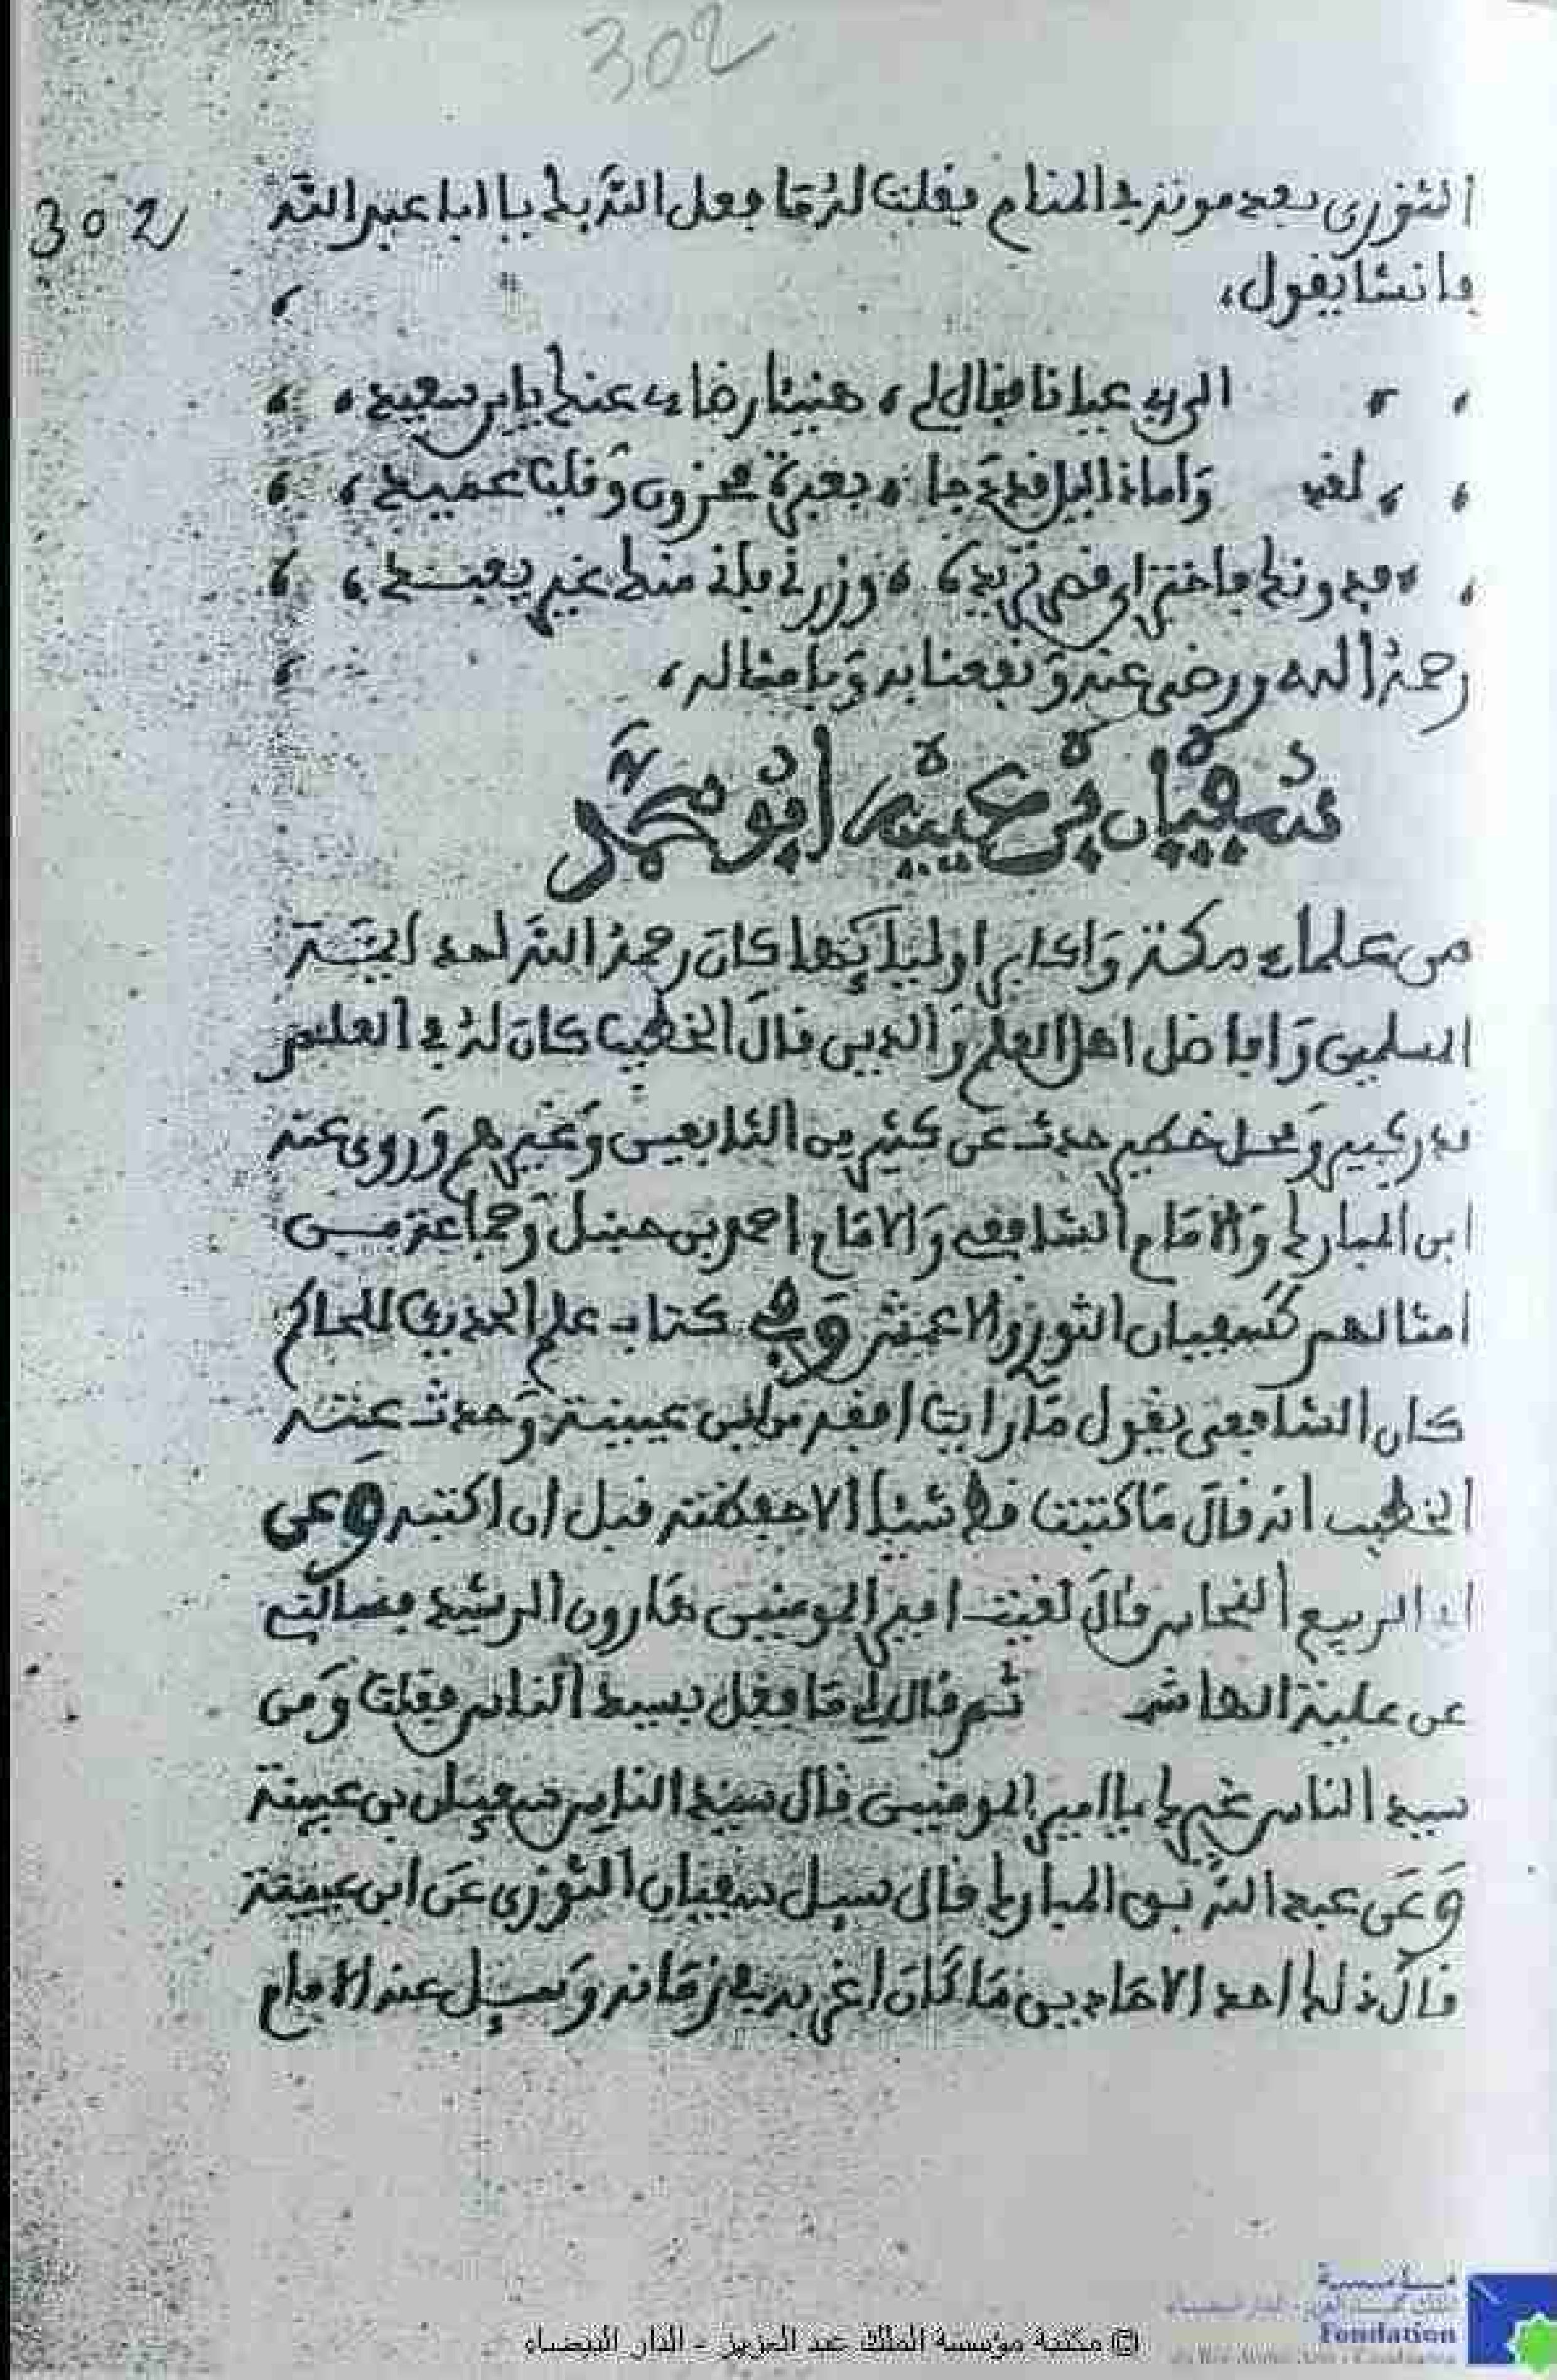 302
302
الثوري بعد موته في المنام فقلت له ما فعل الله بك يا ابا عبد الله
فانشا يقول،
الى ربي عيانا فقال لي، هنيئا رضاءي عنك يابن سعيد،
لقد واما اذا اليل قد دجا، بعبرة محزون وقلب عميد،
فدونك فاختر اي قصر تريد، وزرني فاني منك غير بعيد،
رحمه الله ورضي عنه ونفعنا به وبامثاله،
سفيان بن عيينة ابو محمد
من علماء مكة واكابر اوليايها كان رحمه الله احد ايمة
المسلمين وافاضل اهل العلم والدين قال الخطيب كان له في العلم
قدر كبير ومحل خطير حدث عن كثير من التابعين وغيرهم وروى عنه
ابن المبارك والامام الشافعي والامام احمد بن حنبل وجماعة من
امثالهم كسفيان الثوري والاعمش وفي كتاب علم الحديث للحاكم
كان الشافعي يقول ما رايت افقه من ابن عيينة وحدث عنه
الخطيب انه قال ما كتبت قط شيئا الا حفظته قبل ان اكتبه وعن
ابي الربيع النحاس قال لقيت امير المومنين هارون الرشيد فسالني
عن علية الهاشم ثم قال لي ما فعل بسيد الناس فقلت ومن
سيد الناس غيرك يا امير المومنين قال سيد الناس سفيان بن عيينة
وعن عبد الله بن المبارك قال سيل سفيان الثوري عن ابن عيينة
قال ذلك احد الاحادين ما كان اغربه في زمانه وسيل عنه الامام
مؤسسة
الملك عبد العزيز - الدار البيضاء
Fondation
du Roi Abdul-Aziz - Casablanca
© مكتبة مؤسسة الملك عبد العزيز - الدار البيضاء